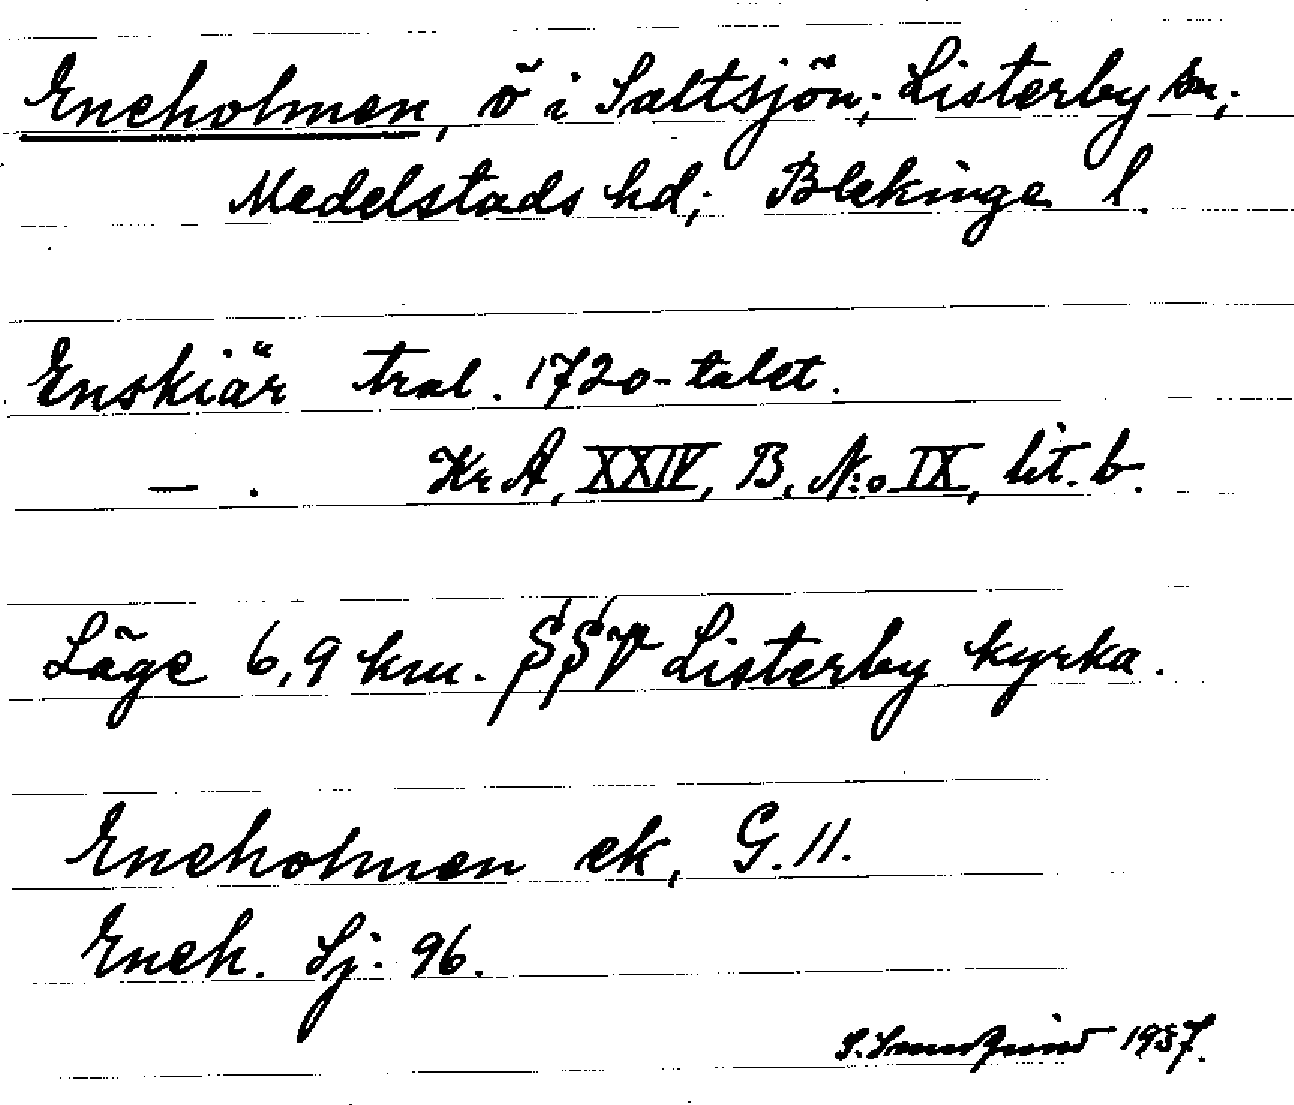 Eneholmen, ö i Saltsjön; Listerby sn;
Medelstads hd; Blekinge l.
Enskiär tral. 1720-talet.
— . KrA, XXIV, B, N:o IX, lit. b.
Läge 6,9 km. SSV Listerby kyrka.
Eneholmen ek, G. 11.
Eneh. Sj: 96.
S. 1937.